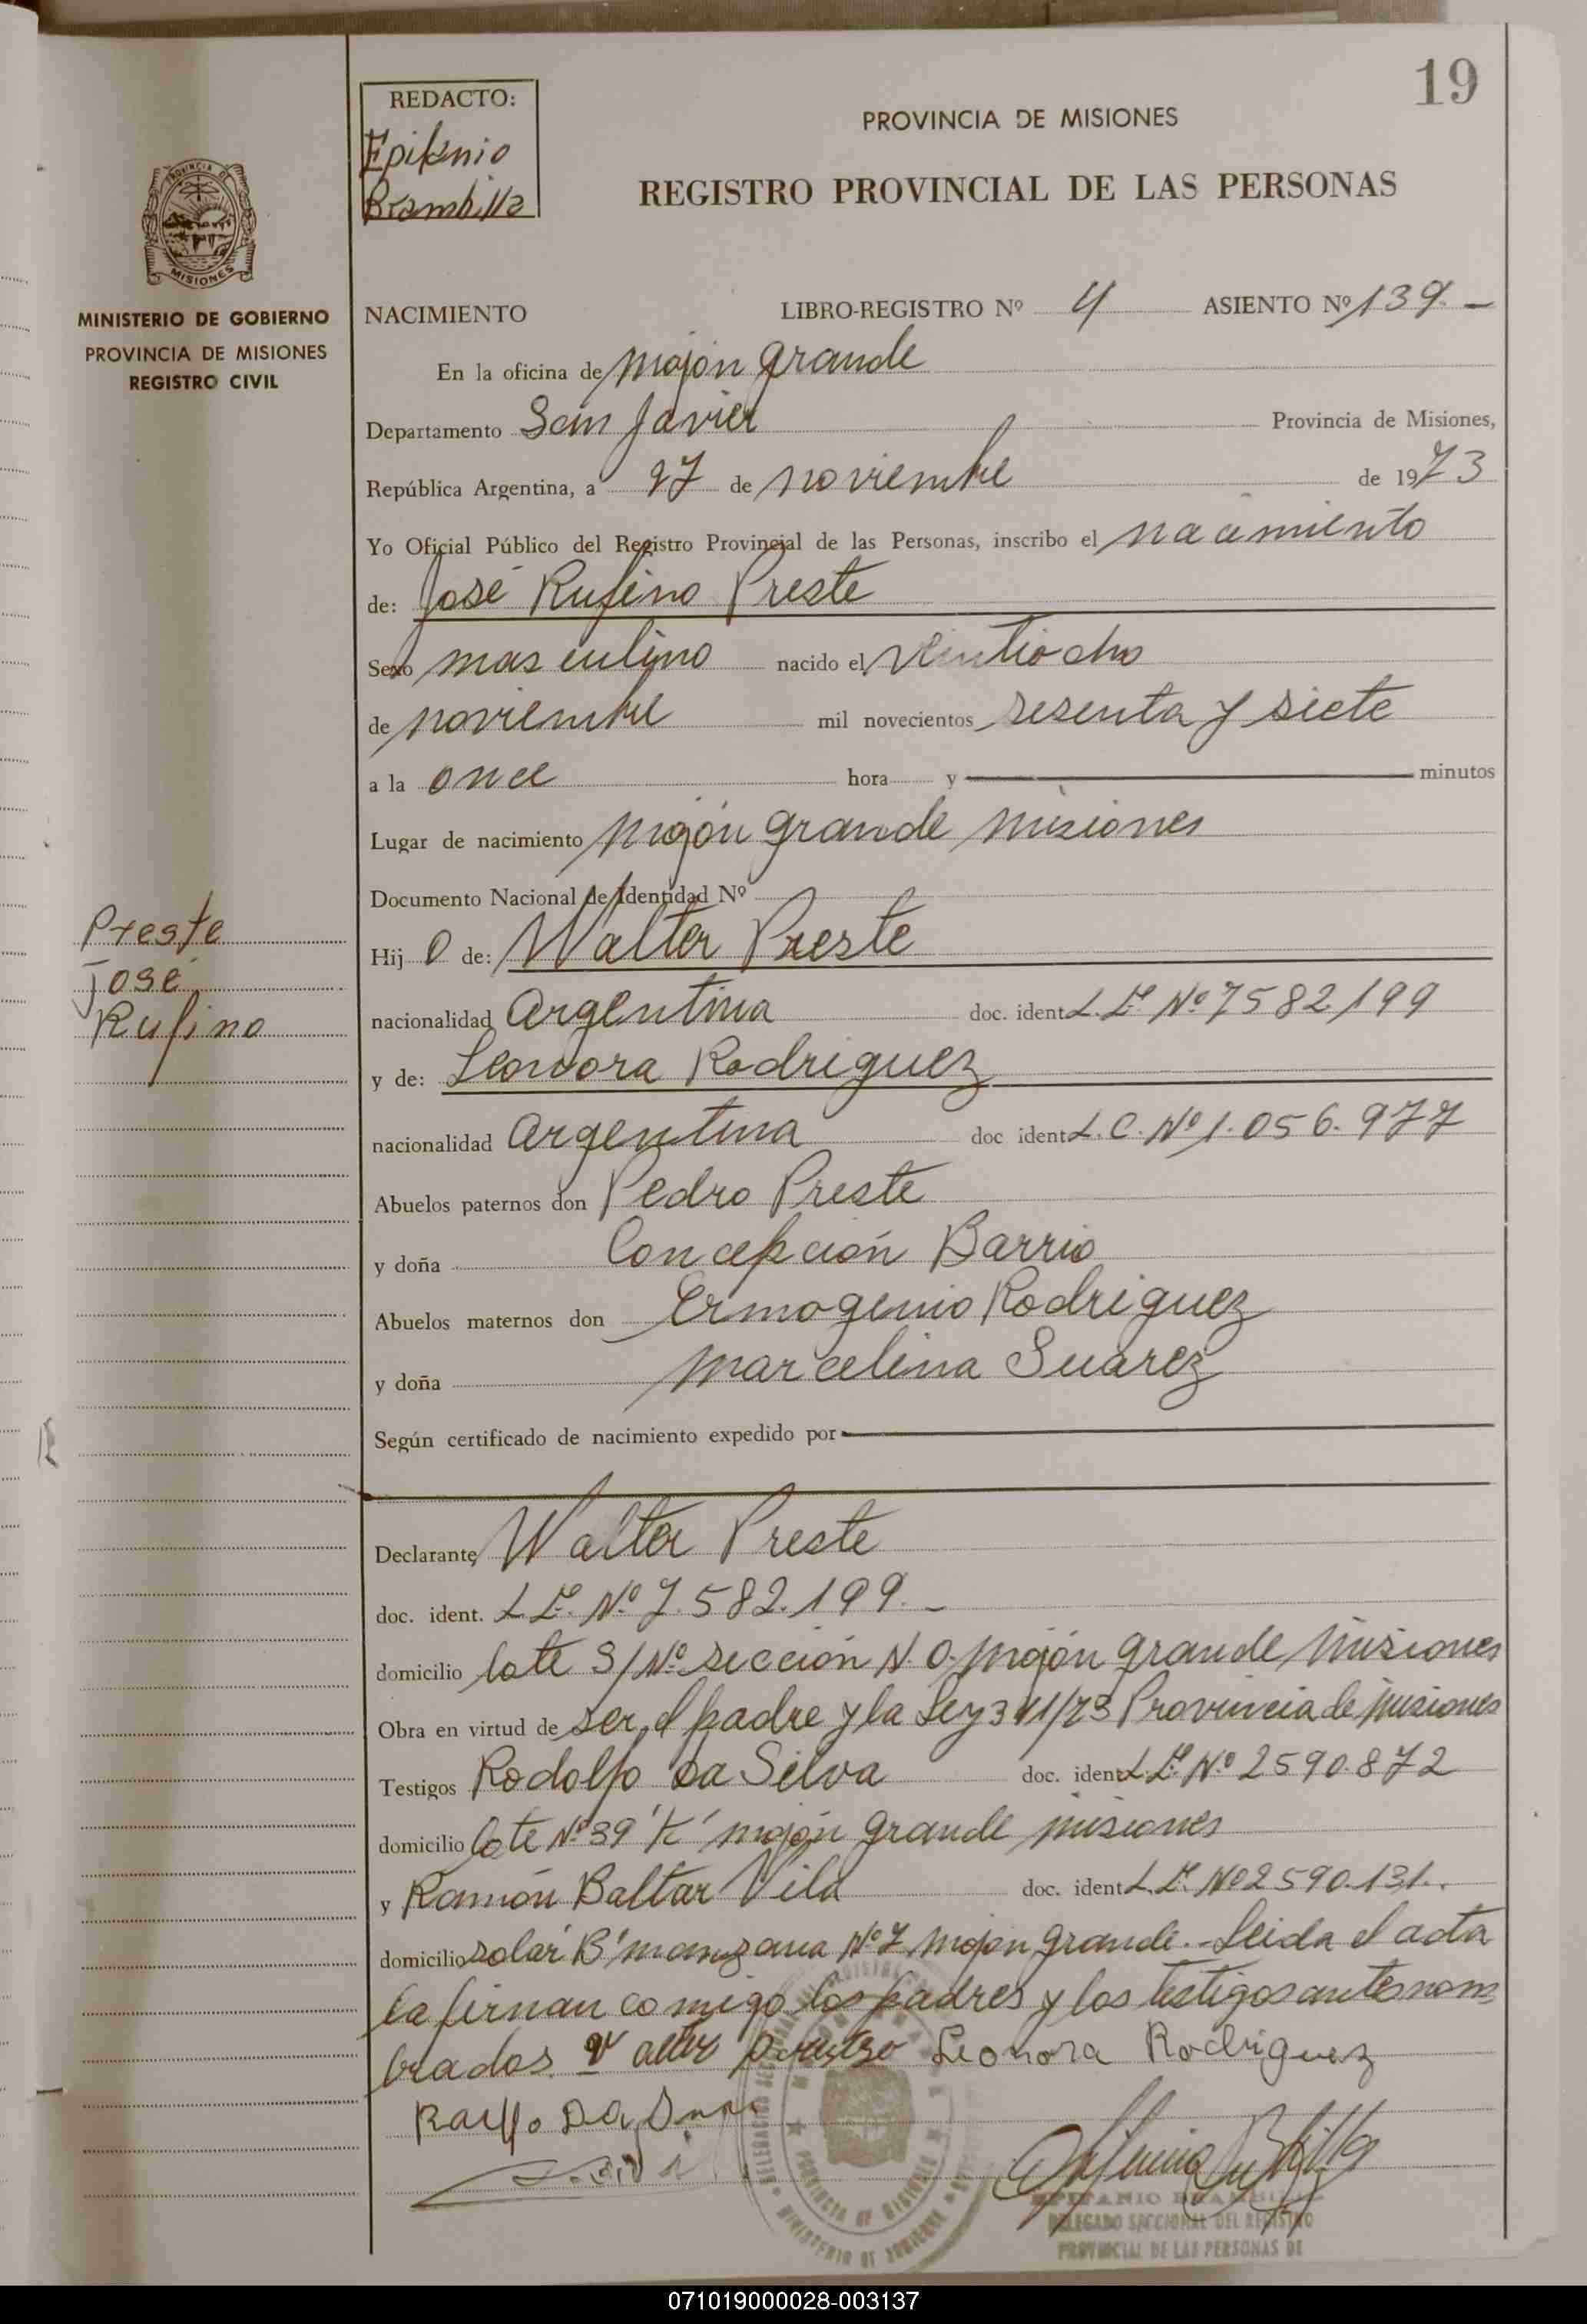 19
REDACTO:
Epifanio
Brambilla
PROVINCIA DE MISIONES
REGISTRO PROVINCIAL DE LAS PERSONAS
PROVINCIA DE
MISIONES
MINISTERIO DE GOBIERNO
PROVINCIA DE MISIONES
REGISTRO CIVIL
NACIMIENTO LIBRO-REGISTRO Nº 4 ASIENTO Nº 139.-
En la oficina de mojón grande
Departamento San Javier Provincia de Misiones,
República Argentina, a 27 de noviembre de 1973
Yo Oficial Público del Registro Provincial de las Personas, inscribo el nacimiento
de: José Rufino Preste
Sexo masculino nacido el veintiocho
de noviembre mil novecientos sesenta y siete
a la once hora y minutos
Lugar de nacimiento mojón grande misiones
Documento Nacional de Identidad Nº
Preste
José
Rufino
Hij o de: Walter Preste
nacionalidad Argentina doc. ident L.E. Nº 7582.199
y de: Leonora Rodriguez
nacionalidad Argentina doc ident L.C. Nº 1.056.977
Abuelos paternos don Pedro Preste
y doña Concepción Barrio
Abuelos maternos don Ermogenio Rodriguez
y doña marcelina Suarez
Según certificado de nacimiento expedido por
Declarante Walter Preste
doc. ident. L.E. Nº 7.582.199.-
domicilio lote S/Nº sección N.O. mojón grande misiones
Obra en virtud de ser el padre y la Ley 311/73 Provincia de misiones
Testigos Rodolfo Da Silva doc. ident L.E. Nº 2590.872
domicilio lote Nº 39 "K" mojón grande misiones
y Ramón Baltar Vila doc. ident L.E. Nº 2590.131.
domicilio solar "B" manzana Nº 7 mojon grande.- Leida el acta
la firman comigo los padres y los testigos antes nom
brados. Leonora Rodriguez
EPIFANIO BRAMBILLA
DELEGADO SECCIONAL DEL REGISTRO
PROVINCIAL DE LAS PERSONAS DE
071019000028-003137